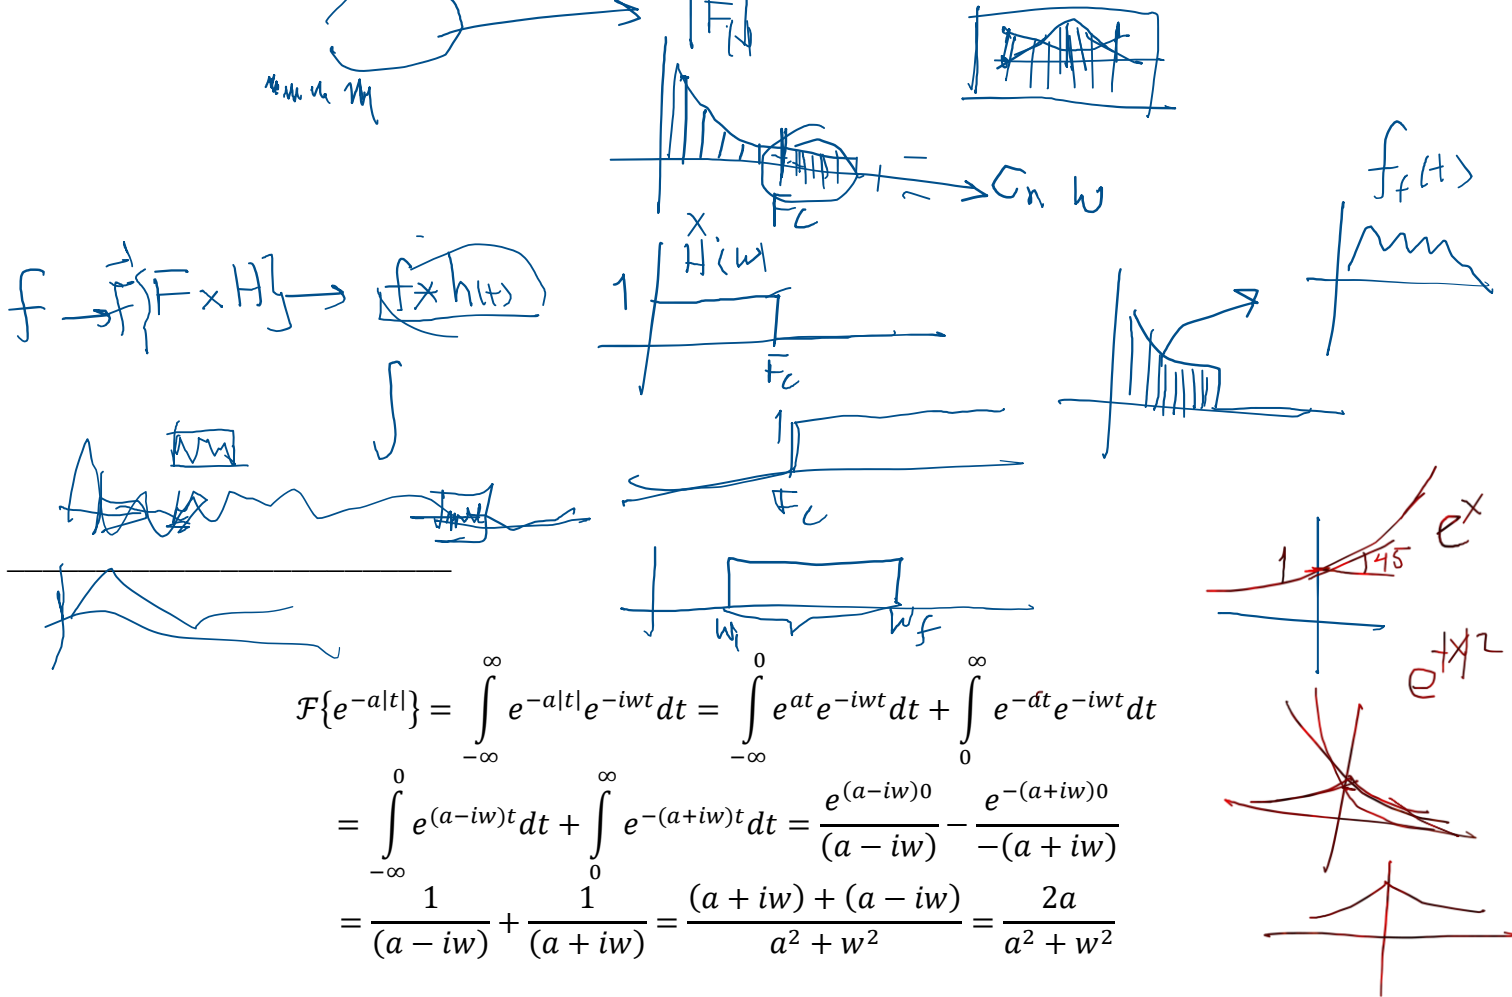 |F|
Fc
Cn w
f_f(t)
x
H(w)
f → F{F x H} → f * h(t)
1
Fc
∫
1
Fc
e^x
1
45
w_i
w_f
e^{-|x|2}
ℱ{e^{−a|t|}} = ∫_{−∞}^{∞} e^{−a|t|}e^{−iwt}dt = ∫_{−∞}^{0} e^{at}e^{−iwt}dt + ∫_{0}^{∞} e^{−at}e^{−iwt}dt
= ∫_{−∞}^{0} e^{(a−iw)t}dt + ∫_{0}^{∞} e^{−(a+iw)t}dt = e^{(a−iw)0}/(a − iw) − e^{−(a+iw)0}/−(a + iw)
= 1/(a − iw) + 1/(a + iw) = ((a + iw) + (a − iw))/(a² + w²) = 2a/(a² + w²)